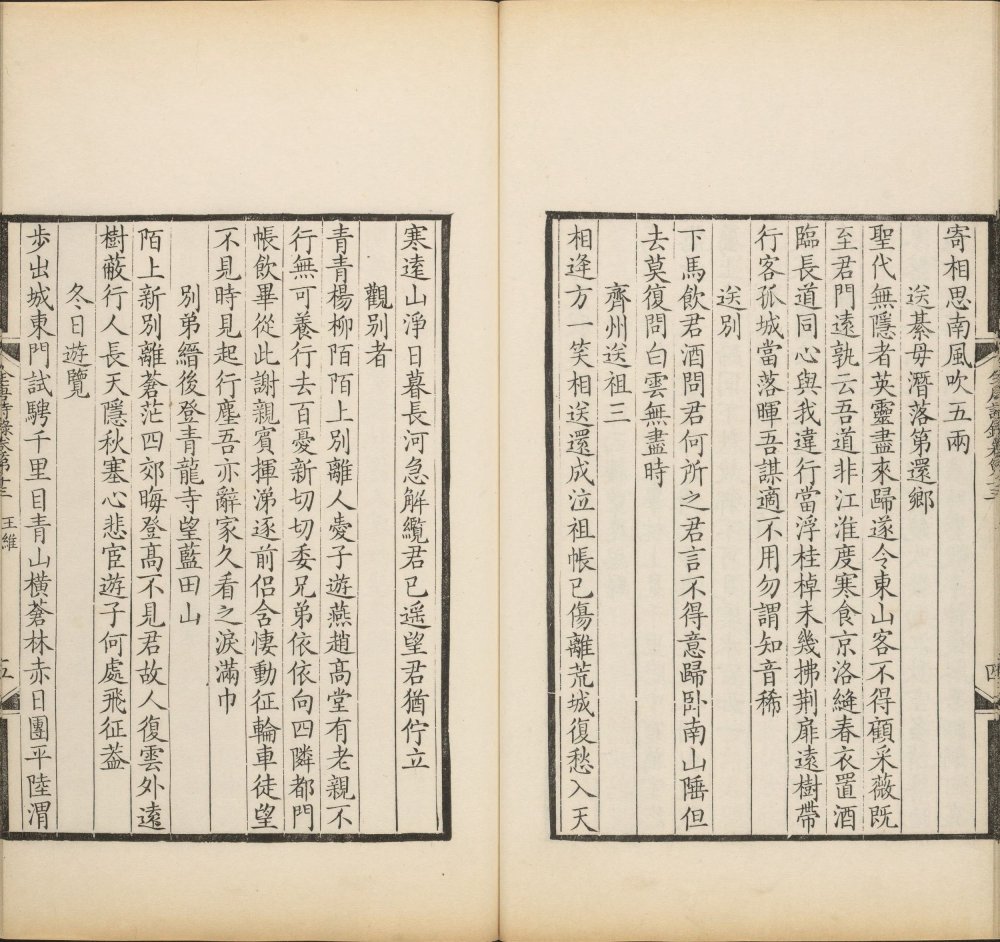 寄相思南風吹五兩
送綦毋潛落第還鄉
聖代無隱者英靈盡來歸遂令東山客不得顧采薇既
至君門遠孰云吾道非江淮度寒食京洛縫春衣置酒
臨長道同心與我違行當浮桂棹未幾拂荆扉遠樹帶
行客孤城當落暉吾謀適不用勿謂知音稀
送别
下馬飲君酒問君何所之君言不得意歸卧南山陲但
去莫復問白雲無盡時
齊州送祖三
相逢方一笑相送還成泣祖帳已傷離荒城復愁入天
寒遠山淨日暮長河急解纜君已遥望君猶佇立
觀别者
青青楊柳陌陌上别離人愛子遊燕趙髙堂有老親不
行無可養行去百憂新切切委兄弟依依向四隣都門
帳飲畢從此謝親賓揮涕逐前侣含悽動征輪車徒望
不見時見起行塵吾亦辭家久看之淚滿巾
别弟縉後登青龍寺望藍田山
陌上新别離蒼茫四郊晦登髙不見君故人復雲外遠
樹蔽行人長天隱秋塞心悲宦遊子何處飛征葢
冬日遊覽
步出城東門試騁千里目青山横蒼林赤日團平陸渭
王維